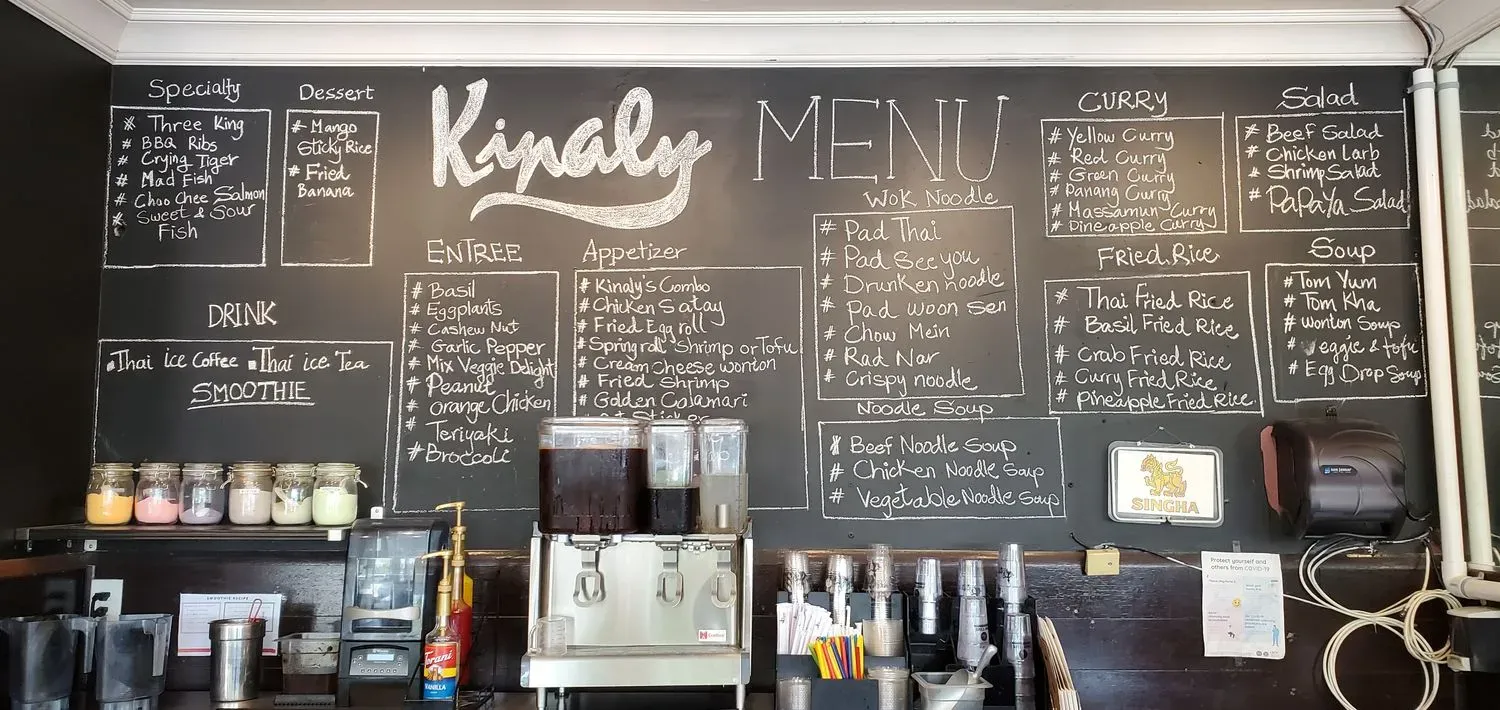 Specialty
# Three King
# BBQ Ribs
# Crying Tiger
# Mad Fish
# Choo Chee Salmon
# Sweet & Sour
Fish
Dessert
# Mango
Sticky Rice
# Fried
Banana
Kinaly MENU
DRINK
Thai ice Coffee Thai ice Tea
SMOOTHIE
ENTREE
# Basil
# Eggplants
# Cashew Nut
# Garlic Pepper
# Mix Veggie Delight
# Peanut
# Orange Chicken
# Teriyaki
# Broccoli
Appetizer
# Kinaly's Combo
# Chicken Satay
# Fried Egg roll
# Spring roll Shrimp or Tofu
# Cream cheese wonton
# Fried Shrimp
# Golden Calamari
Sticker
Wok Noodle
# Pad Thai
# Pad See you
# Drunken noodle
# Pad woon sen
# Chow Mein
# Rad Nar
# Crispy noodle
Noodle Soup
# Beef Noodle Soup
# Chicken Noodle Soup
# Vegetable Noodle Soup
CURRY
# Yellow Curry
# Red Curry
# Green Curry
# Panang Curry
# Massamun Curry
# Pineapple Curry
Fried Rice
# Thai Fried Rice
# Basil Fried Rice
# Crab Fried Rice
# Curry Fried Rice
# Pineapple Fried Rice
Salad
# Beef Salad
# Chicken Larb
# Shrimp Salad
# PaPaYa Salad
Soup
# Tom Yum
# Tom Kha
# wonton Soup
# Veggie & tofu
# Egg Drop Soup
SINGHA
SMOOTHIE RECIPE
Torani
VANILLA
Protect yourself and
others from COVID-19